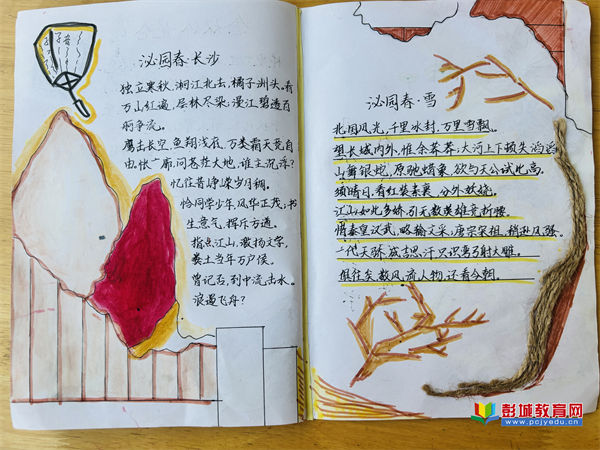 沁园春·长沙
独立寒秋,湘江北去,橘子洲头。看
万山红遍,层林尽染;漫江碧透百
舸争流。
鹰击长空,鱼翔浅底,万类霜天竞自
由。怅廖廓,问苍茫大地,谁主沉浮?
忆往昔峥嵘岁月稠。
恰同学少年,风华正茂;书
生意气,挥斥方遒。
指点江山,激扬文字,
粪土当年万户侯。
曾记否,到中流击水,
浪遏飞舟?
沁园春·雪
北国风光,千里冰封,万里雪飘。
望长城内外,惟余莽莽;大河上下顿失滔滔
山舞银蛇,原驰蜡象,欲与天公试比高。
须晴日,看红装素裹,分外妖娆。
江山如此多娇,引无数英雄竞折腰。
惜秦皇汉武,略输文采;唐宗宋祖,稍逊风骚。
一代天骄,成吉思汗只识弯弓射大雕。
俱往矣,数风流人物,还看今朝。
彭城教育网
www.pcjyedu.cn